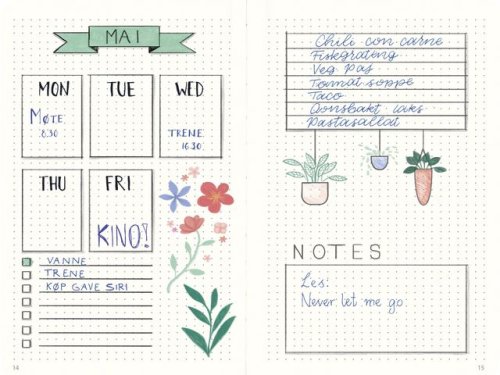 MAI
MON
TUE
WED
MØTE
8.30
TRENE
16.30
THU
FRI
KINO!
VANNE
TRENE
KØP GAVE SIRI
14
Chili con carne
Fiskegrateng
Veg pas
Tomat soppe
Taco
Oonsbakt laks
Pastasallad
NOTES
Les:
Never let me go:
15